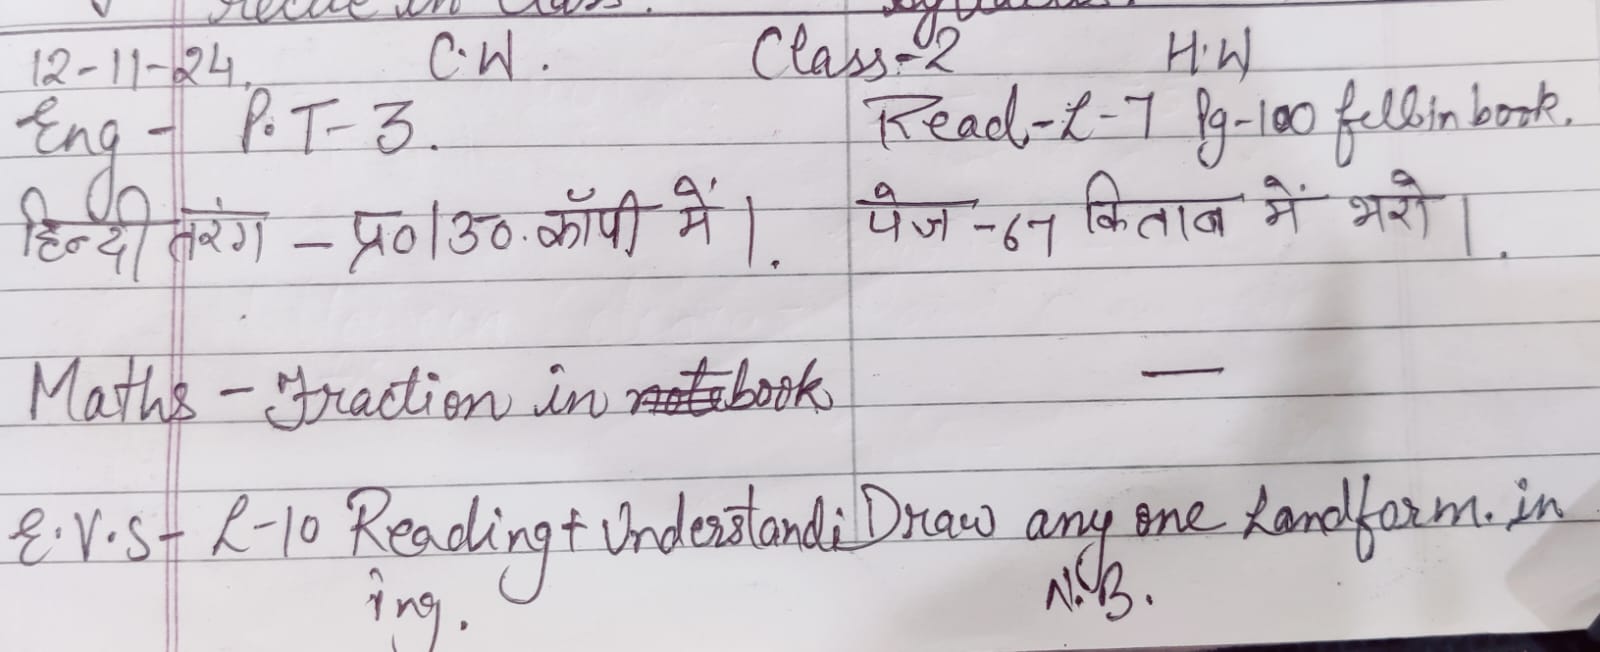 12-11-24. C.W. Class-2 H.W
Eng - P.T-3. Read-L-7 Pg-100 fill in book.
हिन्दी तरंग - प्र०/उ०. कॉपी में। पेज-67 किताब में भरो।
Maths - Fraction in book —
E.V.S - L-10 Reading + Understandi Draw any one Landform. in
ing. N.B.